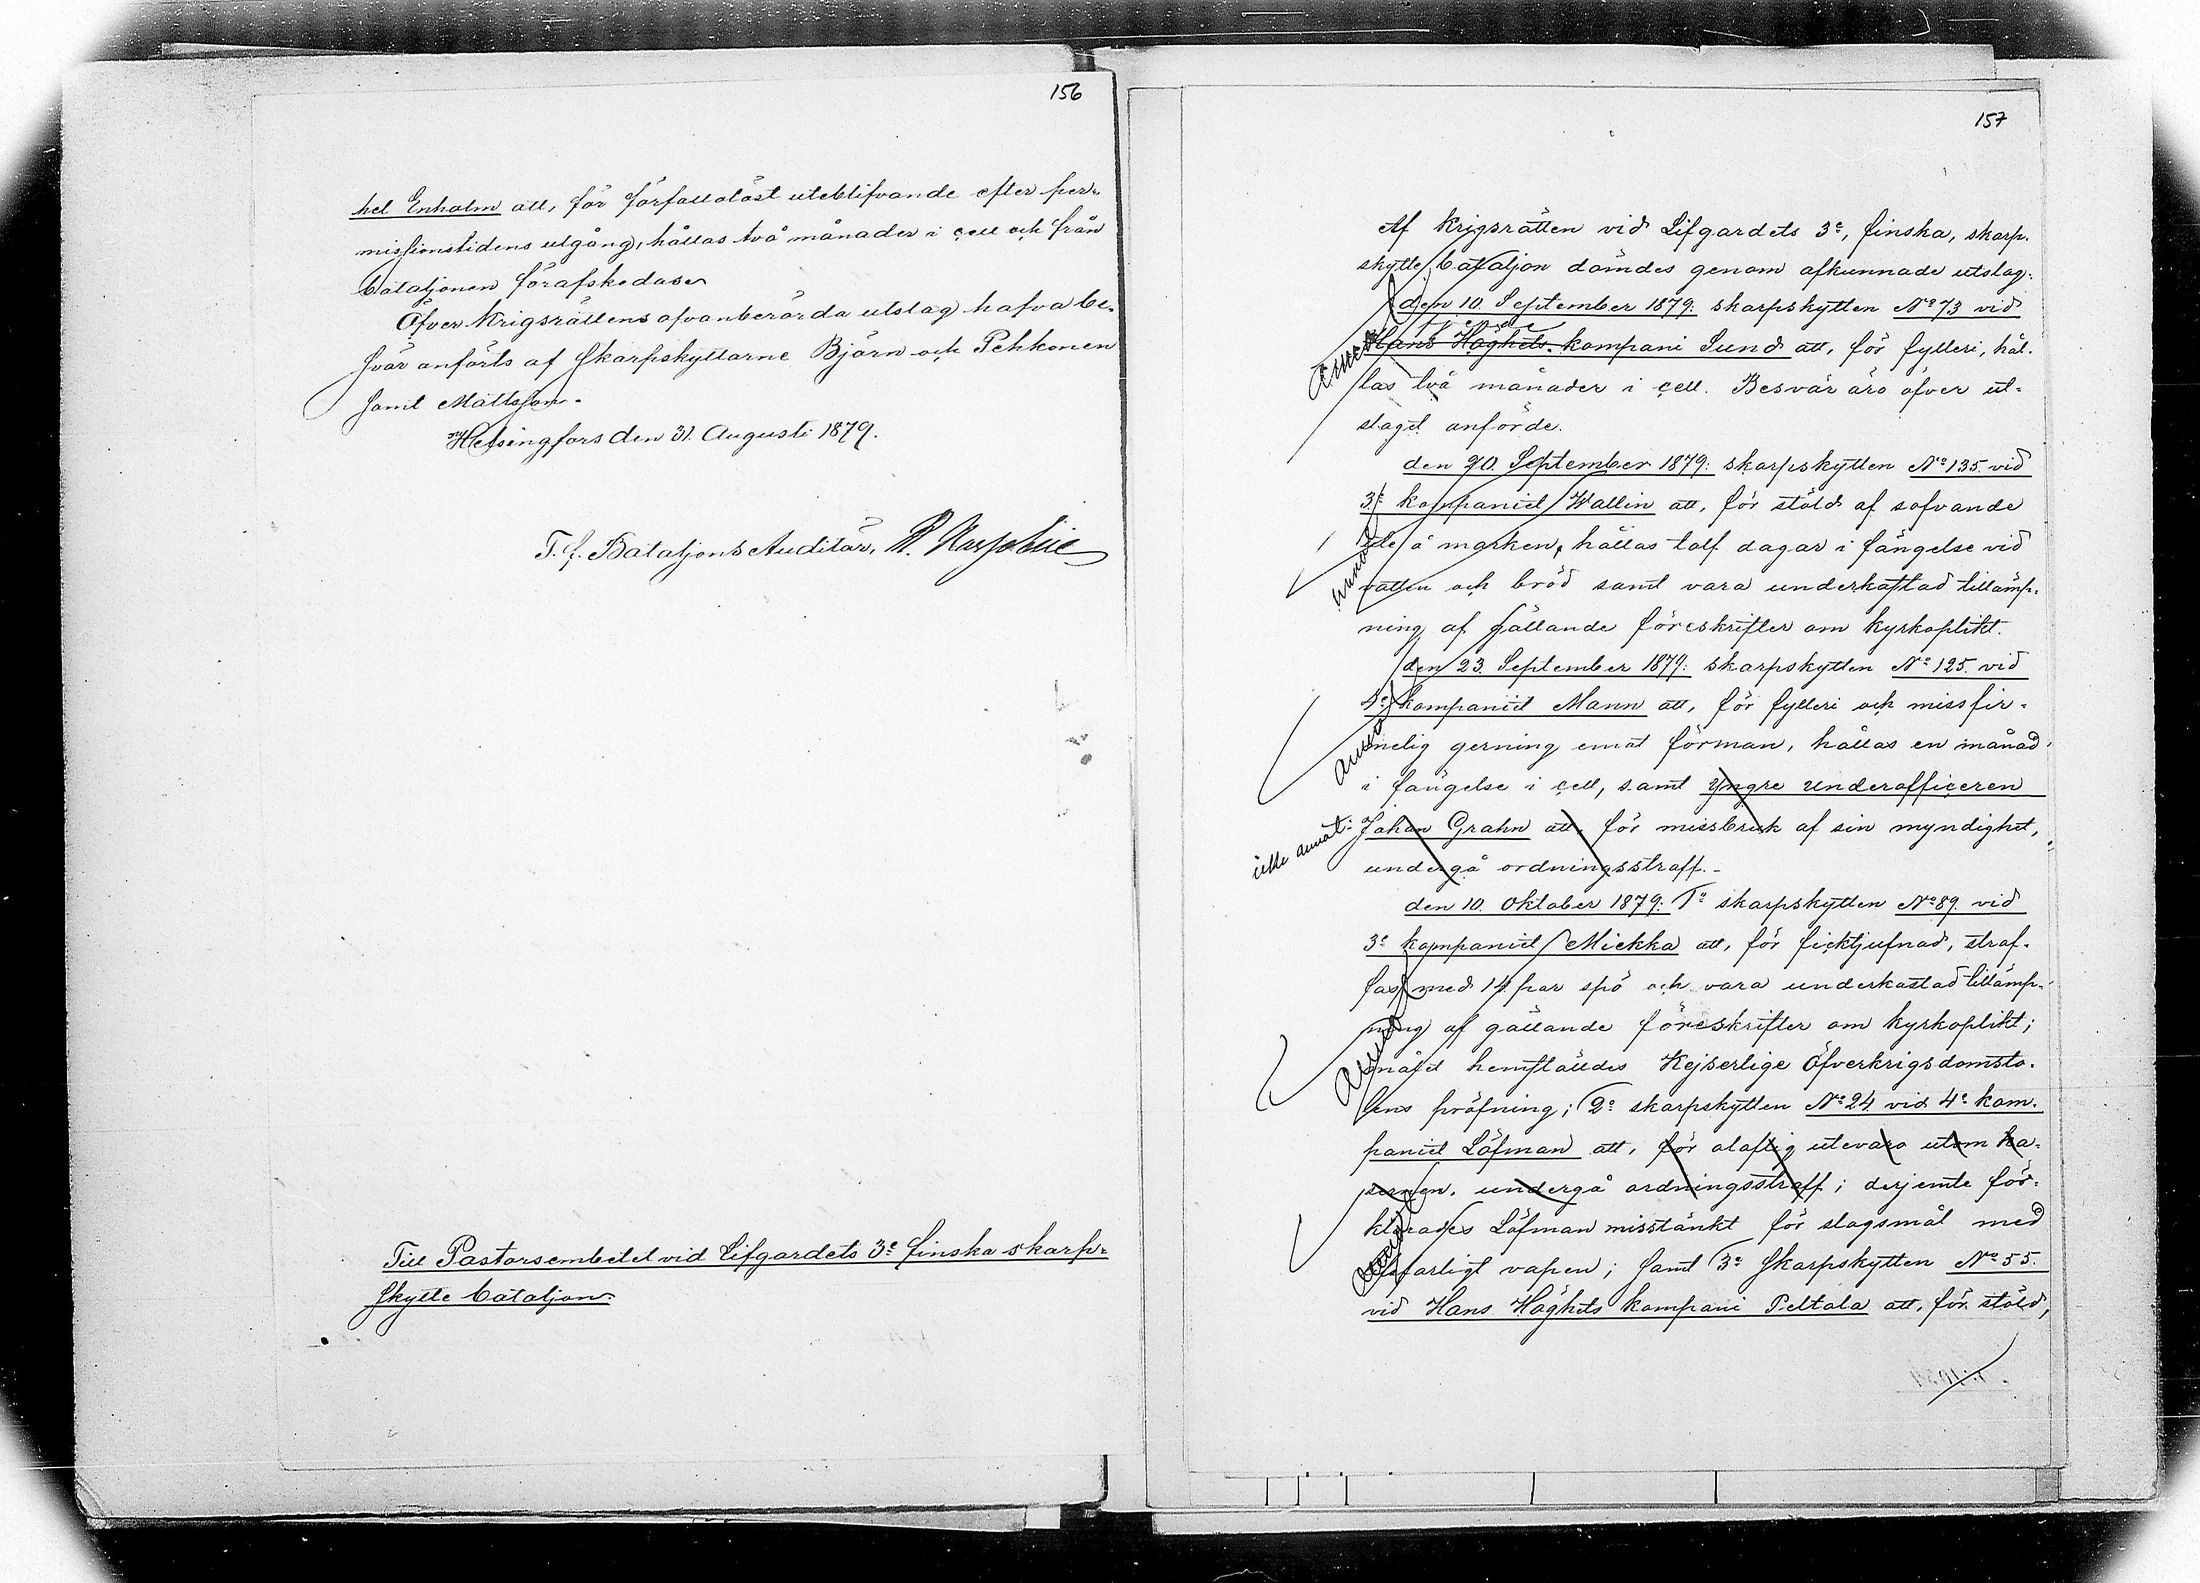 156
kel Enholm att, för förfallolöst uteblifvande efter per-
missionstidens utgång, hållas två månader i cell och från
bataljonen förafskedas.
Öfver Krigsrättens ofvanberörda utslag hafva be-
svär anförts af skarpskyttarne Björn och Pehkonen
samt Mattsson.
Helsingfors den 31. Augusti 1879.
T. f. Bataljons Auditör,
Till Pastorsembetet vid Lifgardets 3e finska skarp-
skytte bataljon.
157
Af Krigsrätten vid Lifgardets 3e, finska, skarp-
skytte bataljon dömdes genom afkunnade utslag:
den 10. September 1879: skarpskytten No 73 vid
Hans Höghets kompani Sund att, för fylleri, hål-
las två månader i cell. Besvär äro öfver ut-
slaget anförde.
den 20. September 1879: skarpskytten No 135. vid
3e kompaniet Wallin att, för stöld af sofvande
ute å marken, hållas tolf dagar i fängelse vid
vatten och bröd samt vara underkastad tillämp-
ning af gällande föreskrifter om kyrkoplikt.
den 23. September 1879: skarpskytten No 125. vid
4e kompaniet Mann att, för fylleri och missfir-
melig gerning emot förman, hållas en månad
i fängelse i cell, samt Yngre underofficeren
icke annot: Johan Grahn att, för missbruk af sin myndighet,
undergå ordningsstraff.-
den 10. Oktober 1879: 1o skarpskytten No 89. vid
3e kompaniet Miekka att, för ficktjufnad, straf-
fas med 14 par spö och vara underkastad tillämp-
ning af gällande föreskrifter om kyrkoplikt;
målet hemställdes Kejserlige Öfverkrigsdomsto-
lens pröfning; 2o skarpskytten No 24 vid 4e kom-
paniet Löfman att, för olaflig utevaro utom ka-
sernen, undergå ordningsstraff; derjemte för-
klarades Löfman misstänkt för slagsmål med
lifsfarligt vapen; samt 3o skarpskytten No 55.
vid Hans Höghets kompani Peltola att, för stöld,